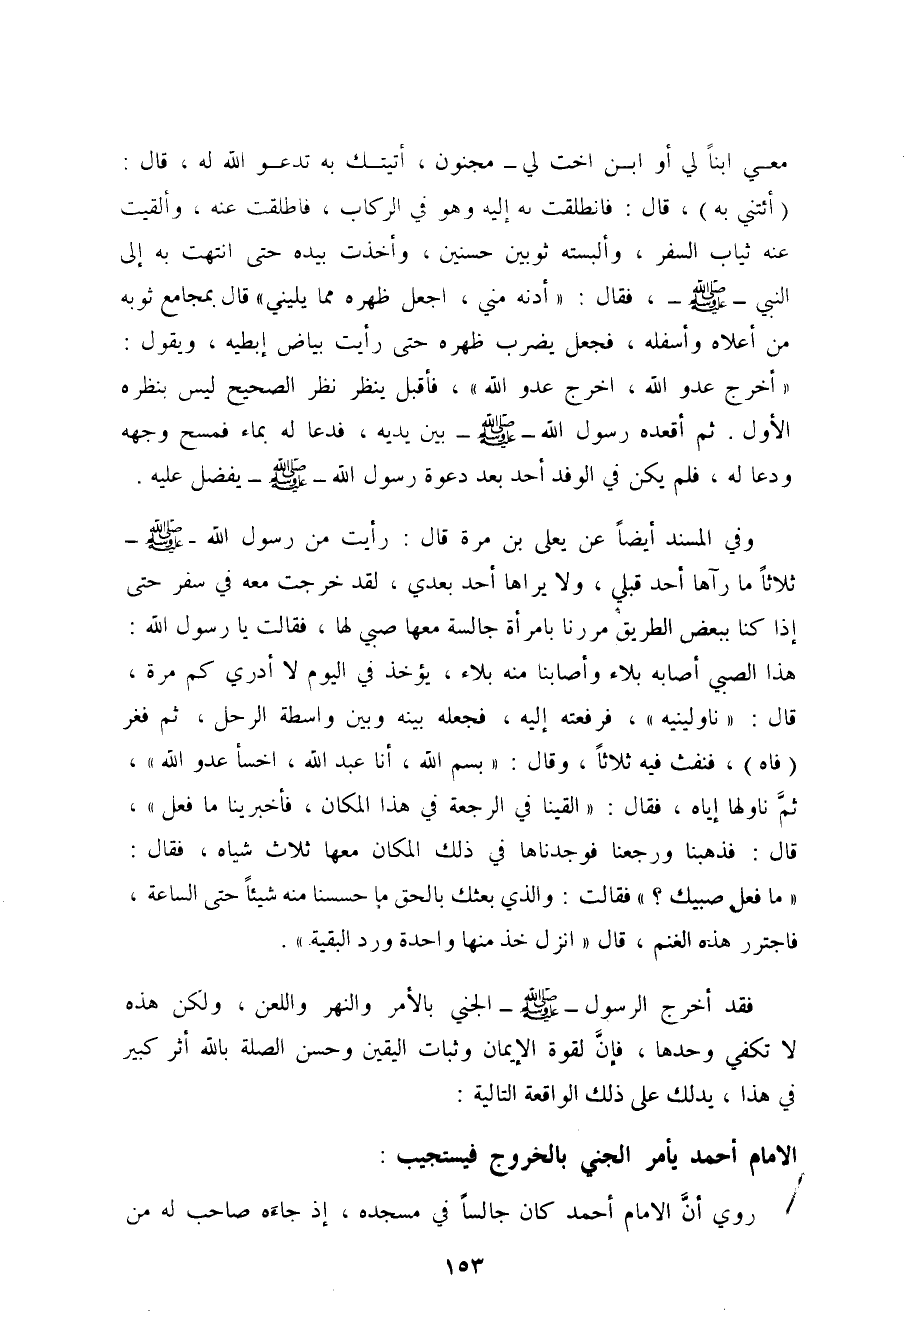 معـي ابناً لي أو ابـن اخت لي ـ مجنون ، أتيتـك به تدعـو الله له ، قال :
( أئتني به ) ، قال : فانطلقت به إليه وهو في الركاب ، فاطلقت عنه ، وألقيت
عنه ثياب السفر ، وألبسته ثوبين حسنين ، وأخذت بيده حتى انتهت به إلى
النبي ـ ﷺ ـ ، فقال : « أدنه مني ، اجعل ظهره مما يليني» قال بمجامع ثوبه
من أعلاه وأسفله ، فجعل يضرب ظهره حتى رأيت بياض إبطيه ، ويقول :
« أخرج عدو الله ، اخرج عدو الله » ، فأقبل ينظر نظر الصحيح ليس بنظره
الأول . ثم أقعده رسول الله ـ ﷺ ـ بين يديه ، فدعا له بماء فمسح وجهه
ودعا له ، فلم يكن في الوفد أحد بعد دعوة رسول الله ـ ﷺ ـ يفضل عليه .
وفي المسند أيضاً عن يعلى بن مرة قال : رأيت من رسول الله ـ ﷺ ـ
ثلاثاً ما رآها أحد قبلي ، ولا يراها أحد بعدي ، لقد خرجت معه في سفر حتى
إذا كنا ببعض الطريق مررنا بامرأة جالسة معها صبي لها ، فقالت يا رسول الله :
هذا الصبي أصابه بلاء وأصابنا منه بلاء ، يؤخذ في اليوم لا أدري كم مرة ،
قال : « ناولينيه » ، فرفعته إليه ، فجعله بينه وبين واسطة الرحل ، ثم فغر
( فاه ) ، فنفث فيه ثلاثاً ، وقال : « بسم الله ، أنا عبد الله ، اخسأ عدو الله » ،
ثمَّ ناولها إياه ، فقال : « القينا في الرجعة في هذا المكان ، فأخبرينا ما فعل » ،
قال : فذهبنا ورجعنا فوجدناها في ذلك المكان معها ثلاث شياه ، فقال :
« ما فعل صبيك ؟ » فقالت : والذي بعثك بالحق ما حسسنا منه شيئاً حتى الساعة ،
فاجترر هذه الغنم ، قال « انزل خذ منها واحدة ورد البقية » .
فقد أخرج الرسول ـ ﷺ ـ الجني بالأمر والنهر واللعن ، ولكن هذه
لا تكفي وحدها ، فإنَّ لقوة الإيمان وثبات اليقين وحسن الصلة بالله أثر كبير
في هذا ، يدلك على ذلك الواقعة التالية :
الامام أحمد يأمر الجني بالخروج فيستجيب :
روي أنَّ الامام أحمد كان جالساً في مسجده ، إذ جاءه صاحب له من
١٥٣